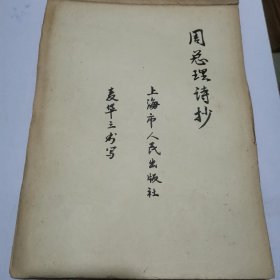 周总理诗抄
上海市人民出版社
麦华三书写